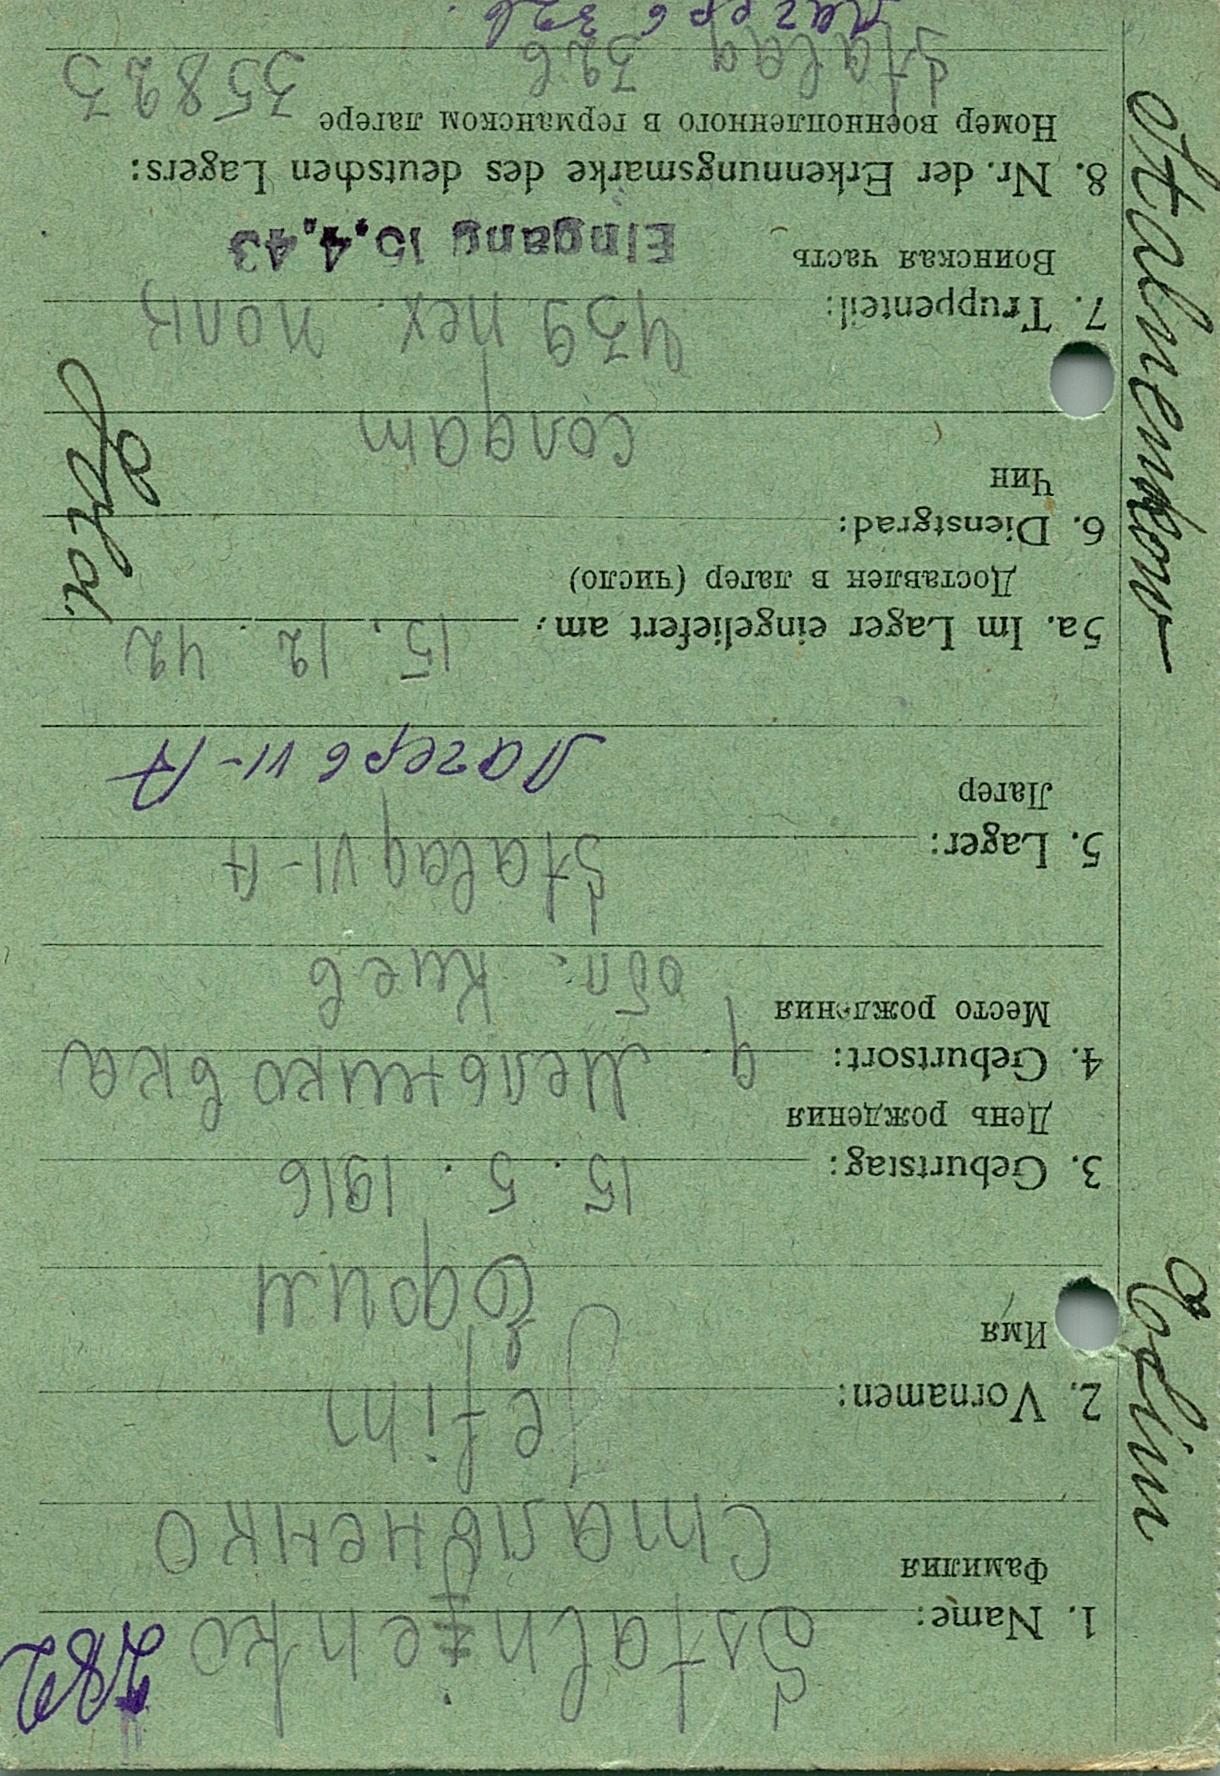 782
1. Name: Sstalnjenko
Фамилия Стальненко
2. Vornamen: Jefim
Имя Ефим
3. Geburtstag: 15. 5. 1916
День рождения
4. Geburtsort: д. Мельниковка
Место рождения обл. Киев
5. Lager: Stalag VI-A
Лагер Лагерь VI-A
5a. Im Lager eingeliefert am: 15. 12. 42
Доставлен в лагер (число)
6. Dienstgrad:
Чин солдат
7. Truppenteil: 439 пех. полк
Воинская часть Eingang 15.4.43
8. Nr. der Erkennungsmarke des deutschen Lagers:
Номер военнопленного в германском лагере 35823
Stalag 326
Лагерь 326
Stalnenkow